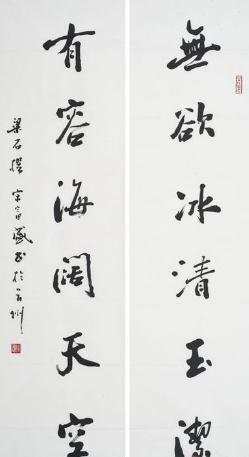 無欲冰清玉潔
有容海闊天空
梁石撰 宋